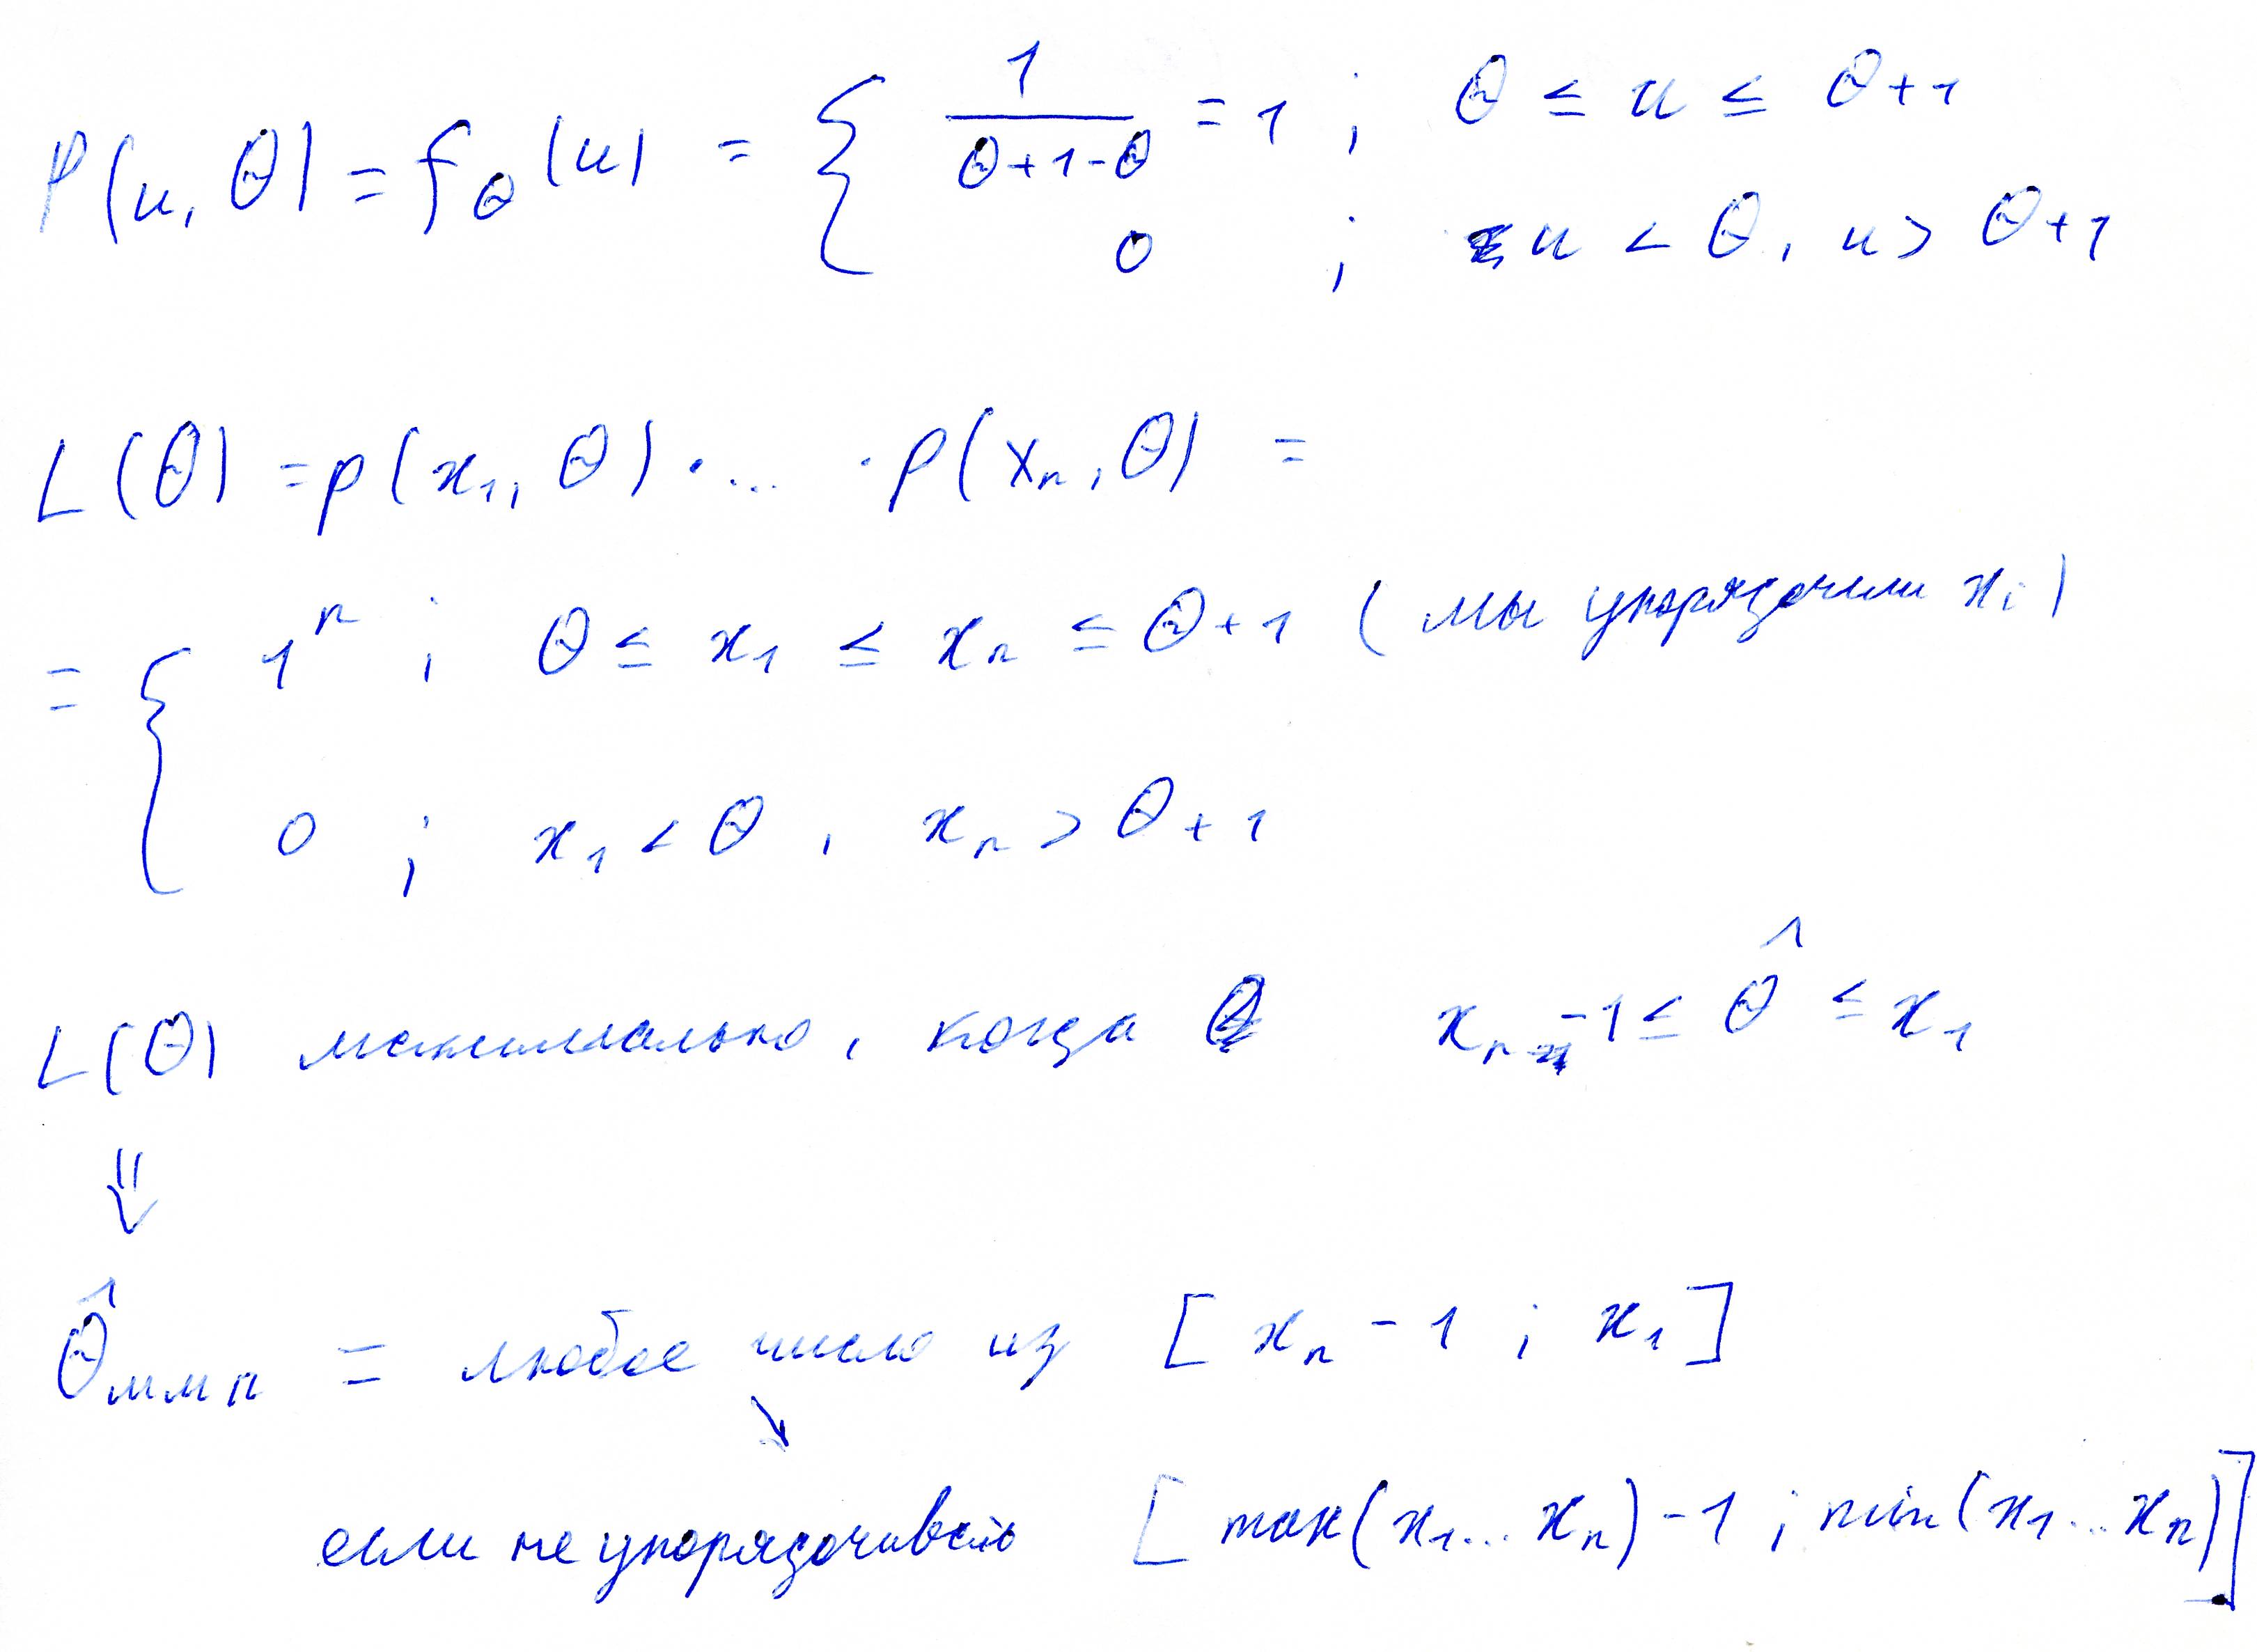 P(u, θ) = f_θ(u) = { 1/(θ+1-θ) = 1 ; θ ≤ u ≤ θ+1
0 ; u < θ, u > θ+1
L(θ) = p(x₁, θ) · ... · p(xₙ, θ) =
= { 1ⁿ ; θ ≤ x₁ ≤ xₙ ≤ θ+1 (мы упорядочили xᵢ)
0 ; x₁ < θ, xₙ > θ+1
L(θ) максимально, когда xₙ - 1 ≤ θ̂ ≤ x₁
⇓
θ̂ммп = любое число из [xₙ - 1 ; x₁]
↘
если не упорядочивать [max(x₁...xₙ) - 1 ; min(x₁...xₙ)]